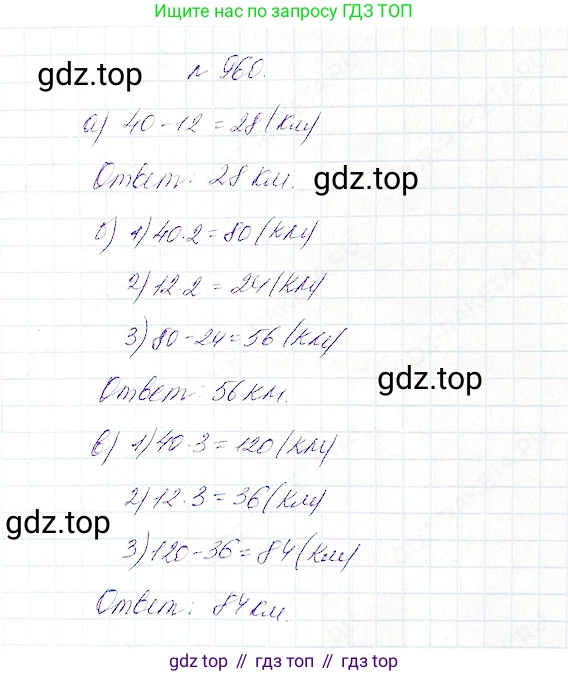 Ищите нас по запросу ГДЗ ТОП
gdz.top
№ 960.
а) 40 - 12 = 28 (км)
Ответ: 28 км.
gdz.top
б) 1) 40 · 2 = 80 (км)
2) 12 · 2 = 24 (км)
3) 80 - 24 = 56 (км)
gdz.top
Ответ: 56 км.
в) 1) 40 · 3 = 120 (км)
2) 12 · 3 = 36 (км)
gdz.top
3) 120 - 36 = 84 (км)
Ответ: 84 км.
gdz top // гдз топ // gdz top